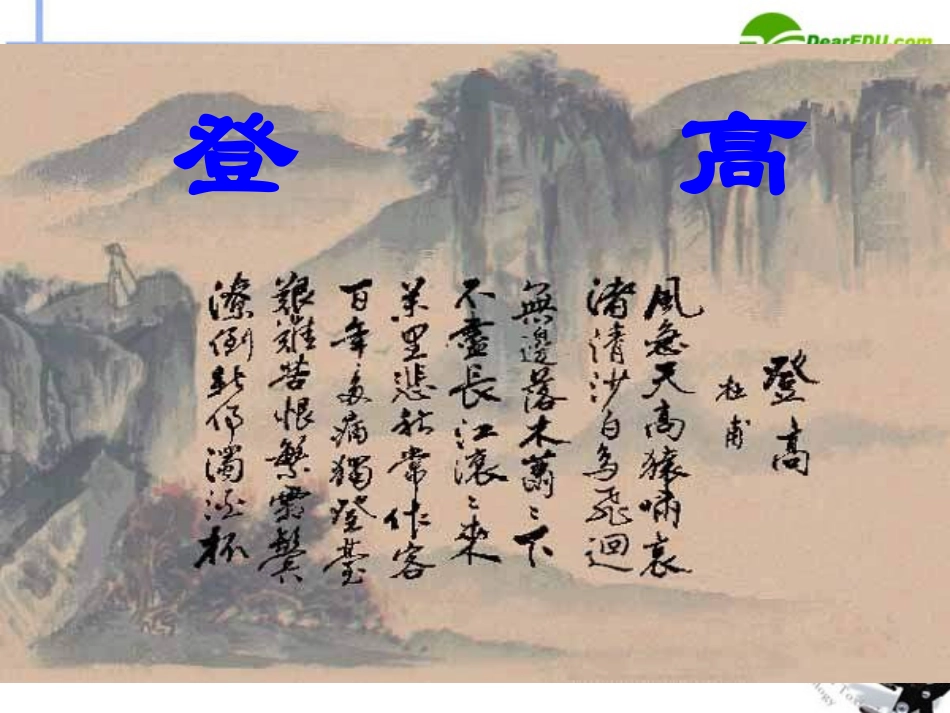 DearEDU.com
登 高
登高
杜甫
風急天高猿嘯哀
渚清沙白鸟飛迴
無邊落木蕭〻下
不盡長江滾〻來
萬里悲秋常作客
百年多病獨登臺
艱難苦恨繁霜鬢
潦倒新停濁酒杯